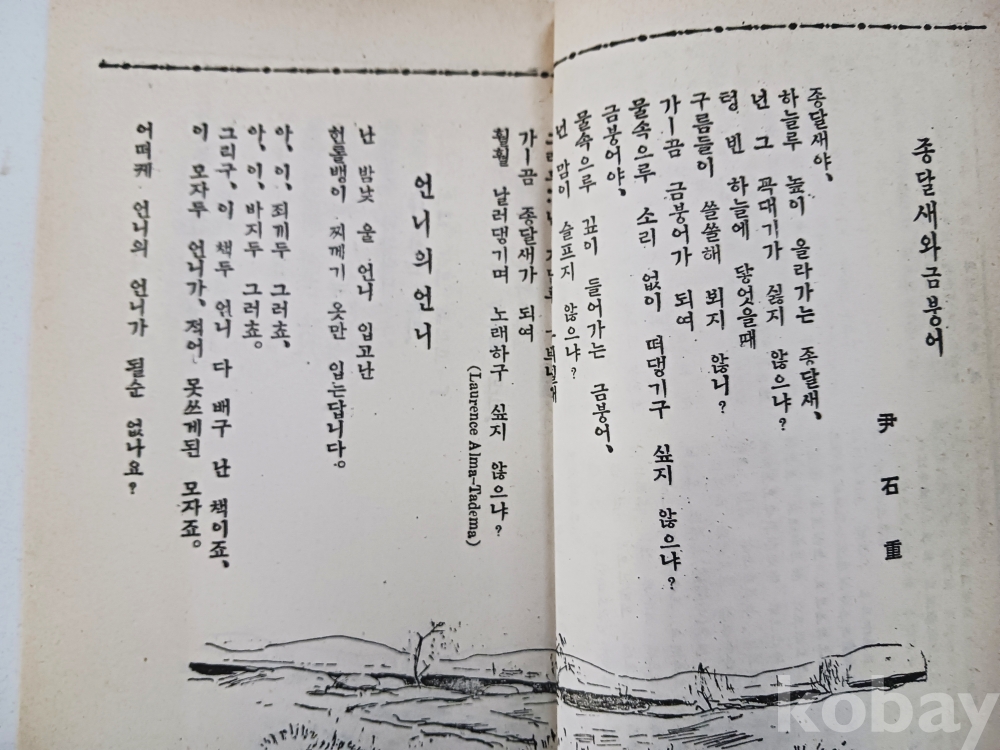 종달새와 금붕어
尹石重
종달새야,
하늘루 높이 올라가는 종달새,
넌 그 꼭대기가 싫지 않으냐?
텅 빈 하늘에 닿엇을때
구름들이 쓸쓸해 뵈지 않니?
가ㅡ끔 금붕어가 되여
물속으루 소리 없이 떠댕기구 싶지 않으냐?
금붕어야,
물속으루 깊이 들어가는 금붕어,
넌 맘이 슬프지 않으냐?
가ㅡ끔 종달새가 되여
훨훨 날러댕기며 노래하구 싶지 않으냐?
(Laurence Alma-Tadema)
언니의 언니
난 밤낮 울 언니 입고난
헌톨뱅이 찌께기 옷만 입는답니다.
아, 이, 죄끼두 그러쵸,
아, 이, 바지두 그러쵸.
그리구, 이 책두 언니 다 배구 난 책이죠,
이 모자두 언니가, 적어 못쓰게된 모자죠.
어떠케 언니의 언니가 될순 없나요?
kobay